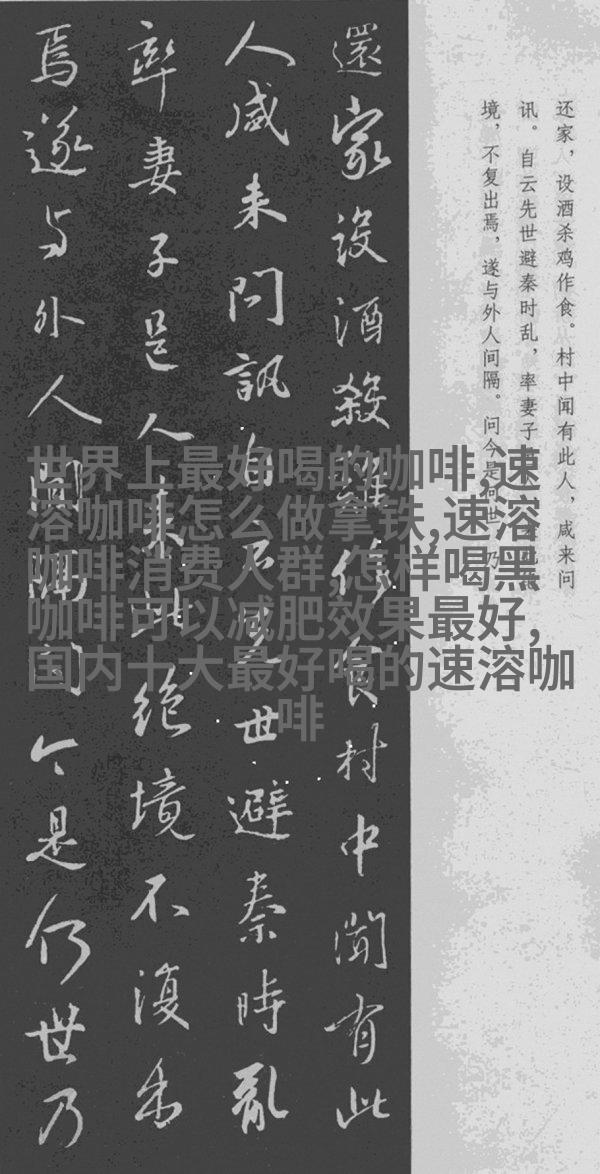 还家，设酒杀鸡作食。村中闻有此人，咸来问
讯。自云先世避秦时乱，率妻子
境，不复出焉，遂与外人间隔。问今是何世，乃
還家設酒殺雞作食村中聞有此
人咸来問訊自云先世避秦時亂
率妻子邑人来此絶境不復出
焉遂与外人間隔問今是何世乃
世界上最好喝的咖啡,速
溶咖啡怎么做拿铁,速溶
咖啡消费人群,怎样喝黑
咖啡可以减肥效果最好,
国内十大最好喝的速溶咖
啡